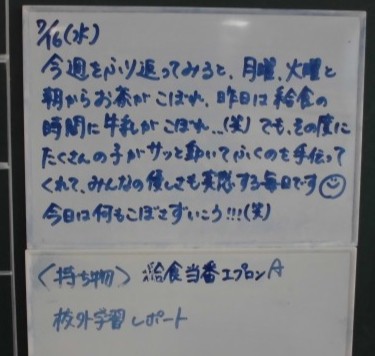 7/16(水)
今週をふり返ってみると、月曜、火曜と
朝からお茶がこぼれ、昨日は給食の
時間に牛乳がこぼれ...(笑)でも、その度に
たくさんの子がサッと動いてふくのを手伝って
くれて、みんなの優しさも実感する毎日です☺
今日は何もこぼさずいこう!!!(笑)
〈持ち物〉 給食当番エプロンA
校外学習レポート